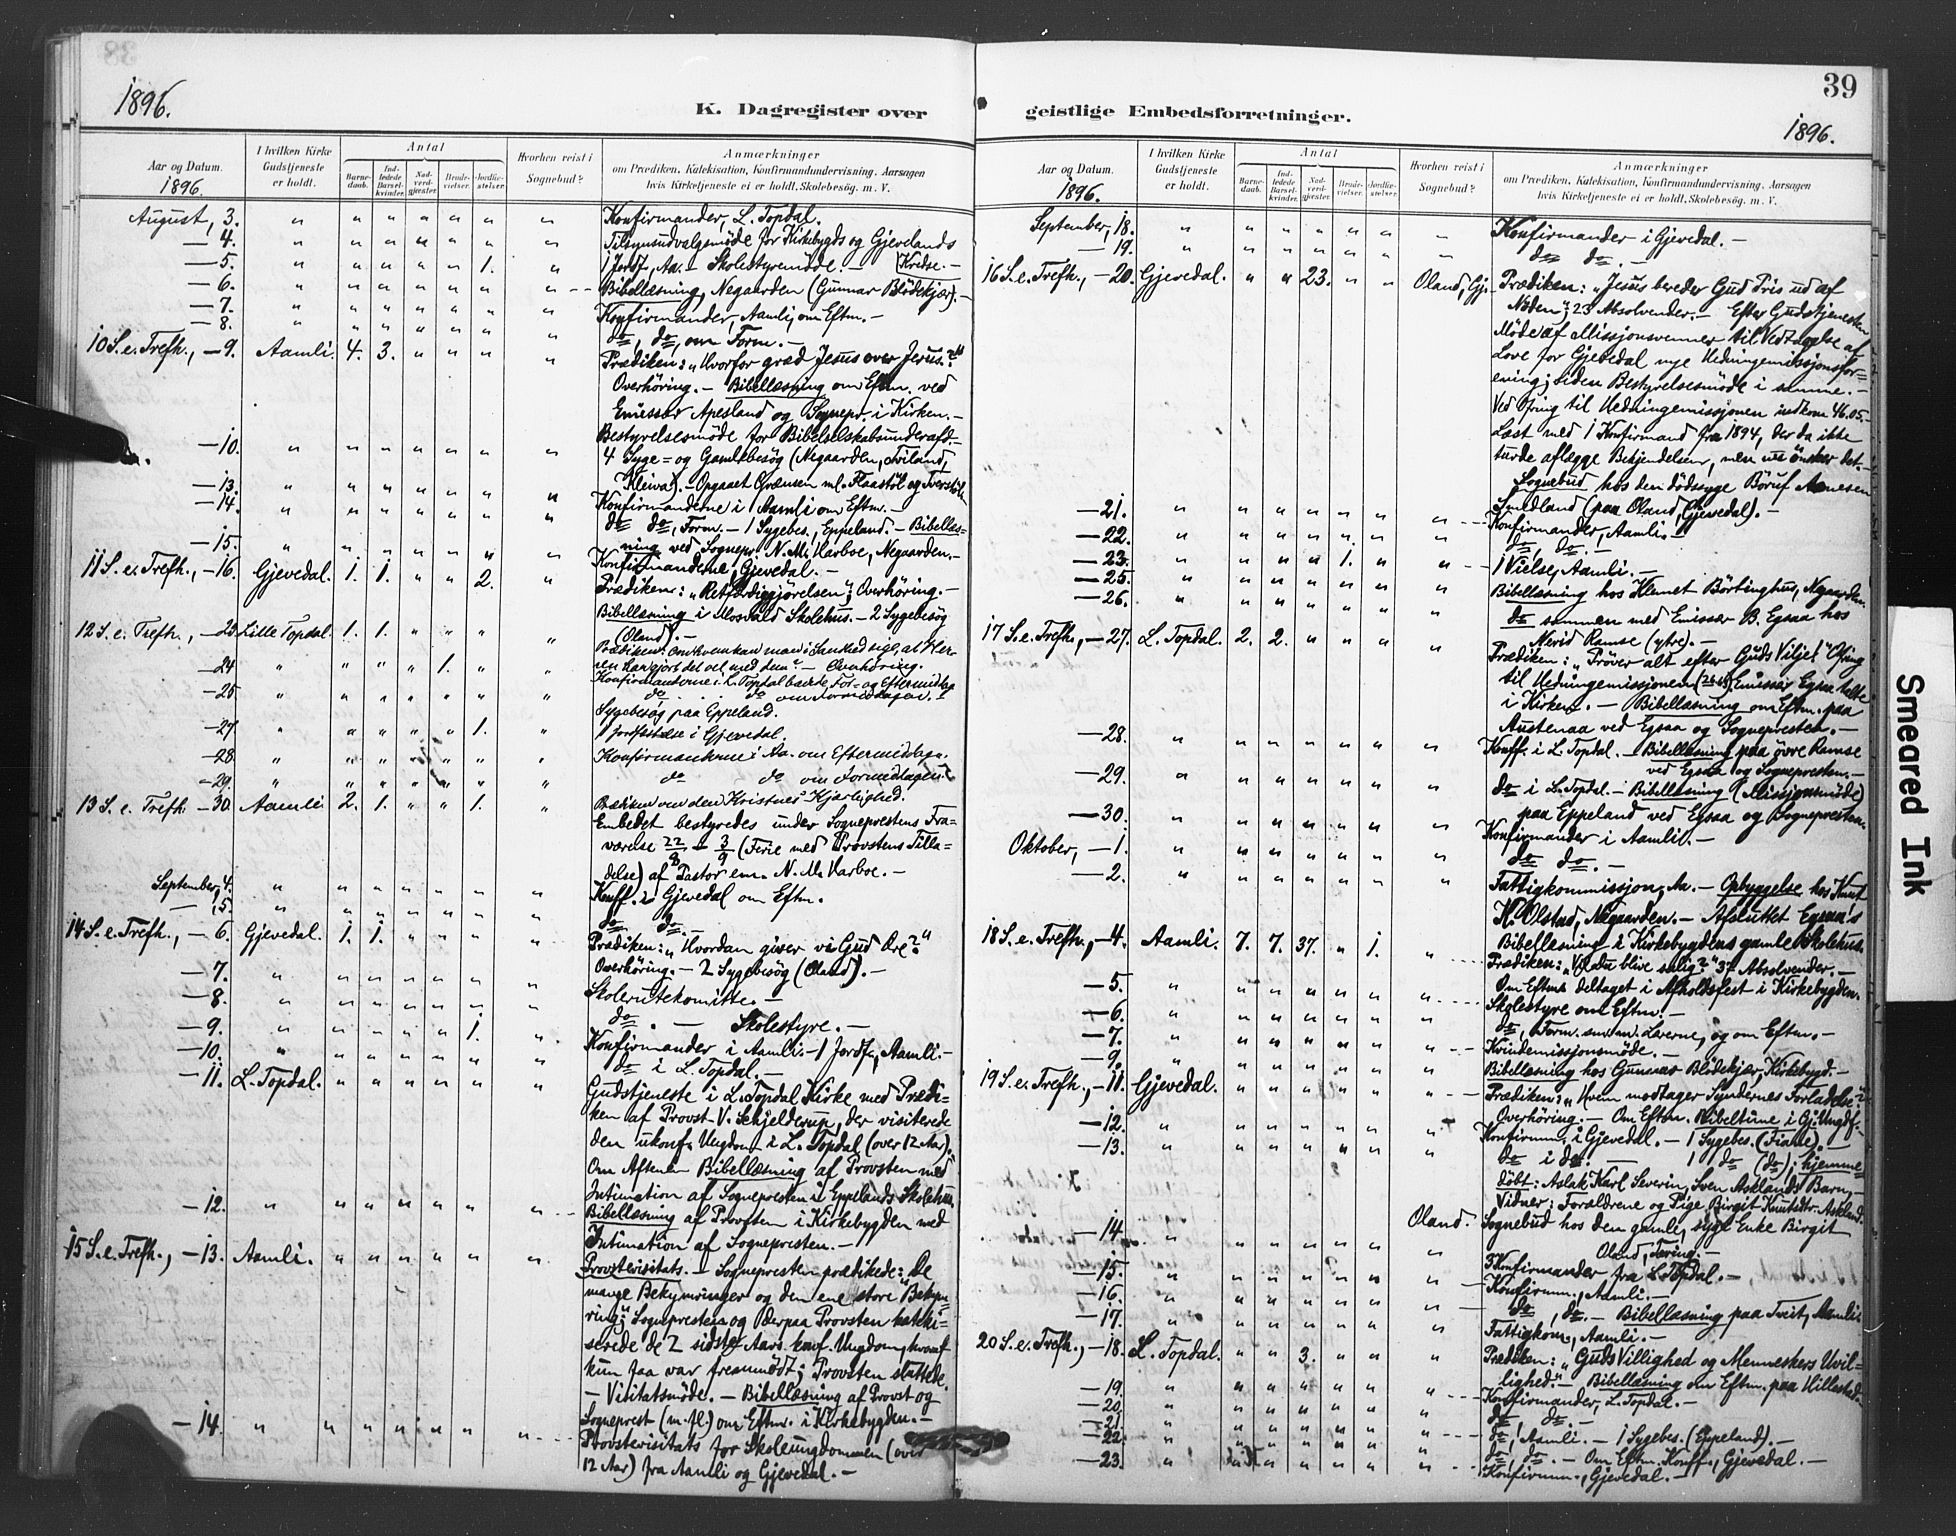 1896.
K. Dagregister over
Aar og Datum. 1896.
I hvilken Kirke Gudstjeneste er holdt.
Antal
Barnedaab. Indledede Barselkvinder. Nadverdgjester. Brudevielser. Jordfæstelser.
Hvorhen reist i Sognebud?
Anmærkninger
om Prædiken, Katekisation, Konfirmandundervisning. Aarsagen
hvis Kirketjeneste ei er holdt. Skolebesøg. m. V.
August, 3. " " " " " " " Konfirmander, L. Topdal.
— 4. " " " " " " " Tilsynsudvalgsmöde for Kirkebygds og Gjevelands
— 5. " " " " " 1. " 1 Jordf., Aa. – Skolestyremöde. – Kredse. –
— 6. " " " " " " " Bibellæsning, Negaarden (Gunnar Blödekjær). –
— 7. " " " " " " " Konfirmander, Aamli, om Eftm. –
— 8. " " " " " " " do, do, om Form. –
10 S. e. Trefh., — 9. Aamli. 4. 3. " " " " Prædiken: „Hvorfor græd Jesus over Jerus.?“
Overhöring. – Bibellæsning om Eftm. ved
Emissær Apesland og Sognepr. i Kirken. –
Bestyrelsesmöde for Bibelselskabsunderafd. –
— 10. " " " " " " " 4 Syge= og Gamlebesög (Negaarden, Friland,
Kleiva). – Opgaaet Grænsen ml. Flaastöl og
— 13. " " " " " " " Konfirmanderne i Aamli om Eftm. –
— 14. " " " " " " " do do, Form. – 1 Sygebes., Eppeland. – Bibellæs-
ning ved Sognepr. N. M. Harboe, Negaarden. –
— 15. " " " " " " " Konfirmanderne, Gjevedal. –
11 S. e. Trefh., — 16. Gjevedal. 1. 1. " " 2. " Prædiken: „Retfærdiggjørelsen“; Overhöring. –
Bibellæsning i Mosvald Skolehus. – 2 Sygebesög
(Oland). –
12 S. e. Trefh., — 23. Lille Topdal. 1. 1. " " " " Prædiken: om hvem kan man i Sandhed sige, at Her-
ren har gjort det vel med dem? – Overhöring.
— 24 " " " " 1. " " Konfirmanderne i L. Topdal baade For- og Eftermiddag
— 25 " " " " " " " do do om Formiddagen. –
Sygebesög paa Eppeland.
— 27. " " " " " 1. " 1 Jordfæstelse i Gjevedal.
— 28. " " " " " " " Konfirmanderne i Aa. om Eftermiddagen.
— 29. " " " " " " " do do om Formiddagen.
13 S. e. Trefh. — 30. Aamli 2. 1. " " 1. " Prædiken om den Kristnes Kjærlighed.
Embedet bestyredes under Sogneprestens Fra-
værelse 22/8 – 3/9 (Ferie med Provstens Tilla-
delse) af Pastor em. N. M. Harboe. –
September, 4. " " " " " " " Konff. i Gjevedal om Eftm.
— 5. " " " " " " " do. do. –
14 S. e. Trefh., — 6. Gjevedal. 1. 1. " " " " Prædiken: „Hvordan giver vi Gud Ære?“
Overhöring. – 2 Sygebesög (Oland). –
— 7. " " " " " " " Skolerutekomitte. –
— 8. " " " " " " " do. — Skolestyre. –
— 9. " " " " " 1. " Konfirmander i Aamli. – 1 Jordf., Aamli. –
— 10. " " " " " " " do i L. Topdal. –
— 11. L. Topdal. " " " " " " Gudstjeneste i L. Topdal Kirke med Prædi-
ken af Provst V. Schjelderup, der visiterede
den ukonf. Ungdom i L. Topdal (over 12 Aar).
Om Aftenen Bibellæsning af Provsten med
Intimation af Sognepresten i Eppelands Skolehus.
— 12. " " " " " " " Bibellæsning af Provsten i Kirkebygden med
Intimation af Sognepresten. –
15 S. e. Trefh., — 13. Aamli. " " " " " " Provstevisitats. – Sognepresten prædikede: „De
mange Bekymringer og den ene store Bekym-
ring.“ Sognepresten og derpaa Provsten kateki-
serede de 2 sidste Aars konf. Ungdom, hvoraf
kun faa var fremmödt; Provsten sluttede.
– Visitatsmöde. – Bibellæsning af Provst og
Sogneprest (m. fl.) om Eftm. i Kirkebygden. –
— 14. " " " " " " " Provstevisitats for Skoleungdommen (over
12 Aar) fra Aamli og Gjevedal. –
39
geistlige Embedsforretninger.
1896.
Aar og Datum. 1896.
I hvilken Kirke Gudstjeneste er holdt.
Antal
Barnedaab. Indledede Barselkvinder. Nadverdgjester. Brudevielser. Jordfæstelser.
Hvorhen reist i Sognebud?
Anmærkninger
om Prædiken, Katekisation, Konfirmandundervisning. Aarsagen
hvis Kirketjeneste ei er holdt. Skolebesøg. m. V.
September, 18. " " " " " " " Konfirmander i Gjevedal. –
— 19. " " " " " " " do do. –
16 S. e. Trefh., — 20. Gjevedal. " " 23. " " Oland, Gj. Prædiken: „Jesus bereder Gud Pris ud af
Nöden“; 23 Absolvender. – Efter Gudstjenesten
Möde af Missjonsvenner til Vedtagelse af
Love for Gjevedal nye Hedningemissjonsfor=
ening; siden Bestyrelsesmöde i samme. –
Ved Ofring til Hedningemissjonen indkom 46.05.
Læst med 1 Konfirmand fra 1894, der da ikke
turde aflægge Bekjendelsen, men nu önsker det. –
Sognebud hos den dödssyge Böruf Aanesen
Smedland (paa Oland, Gjevedal). –
— 21. " " " " " " " Konfirmander, Aamli. –
— 22. " " " " " " " do, do. –
— 23. " " " " 1. " " 1 Vielse, Aamli. –
— 25. " " " " " " " Bibellæsning hos Klemet Börtinghus, Negaarden.
— 26. " " " " " " " do sammen med Emissær B. Egsaa hos
Mevid Ramse (ytre). –
17 S. e. Trefh., — 27. L. Topdal. 2. 2. " " " " Prædiken: „Pröver alt efter Guds Vilje!“ Ofring
til Hedningemissjonen Emissær Egsaa talte
i Kirken. – Bibellæsning om Eftm. paa
Austenaa ved Egsaa og Sognepresten. –
— 28. " " " " " " " Konff. i L. Topdal. – Bibellæsning paa övre Ramse
ved Egsaa og Sognepresten. –
— 29. " " " " " " " do i L. Topdal. – Bibellæsning (Missjonsmöde)
paa Eppeland ved Egsaa og Sognepresten.
— 30. " " " " " " " Konfirmander i Aamli. –
Oktober, — 1. " " " " " " " do do. –
— 2. " " " " " " " Fattigkommissjon, Aa. – Opbyggelse hos Knut
K. Ølstad, Negaarden. – Afsluttet Egsaa's
Bibellæsning i Kirkebygdens gamle Skolehus.
18 S. e. Trefh., — 4. Aamli. 7. 7. 37. " 1. " Prædiken: „Vil du blive salig?“ 37 Absolvender. –
Om Eftm. deltaget i Afholdsfest i Kirkebygden.
— 5. " " " " " " " Skolestyre om Eftm. –
— 6. " " " " " " " do, Form. sm. m. Lærerne, og om Eftm. –
— 7. " " " " " " " Kvindemissjonsmöde. –
— 9. " " " " " " " Bibellæsning hos Gunnar Blödekjær, Kirkebygd. –
19 S. e. Trefh., — 11. Gjevedal. " " " " " " Prædiken: „Hvem modtager Syndernes Forladelse?“
Overhöring. – Om Eftm. Bibeltime i Gj. Ungdf. –
— 12. " " " " " " " Konfirmm. i Gjevedal. – 1 Sygebes. –
— 13. " " " " " " " do i do. – 1 do (do); hjemme=
döbt: Aslak Karl Severin, Sven Asklands Barn, –
Vidner: Forældrene og Pige Birgit Knutsdtr. Askland.
— 14. " " " " " " Oland. Sognebud hos den gamle, syge Enke Birgit
Oland, –
— 15. " " " " " " " 3 Konfirmander fra L. Topdal. –
— 16. " " " " " " " Konfirmm., Aamli. –
— 17. " " " " " " " do, do. – Bibellæsning paa Tveit, Aamli.
Fattigkom., Aamli. –
20 S. e. Trefh., — 18. L. Topdal. " " 3. " " " Prædiken: „Guds Villighed og Menneskers Uvil=
lighed.“ – Bibellæsning om Eftm. paa Hillestad.
— 19. " " " " " " " Konfirmander, L. Topdal. –
— 20. " " " " " " " do, do. –
— 21. " " " " " " " do, Aamli. – 1 Sygebes. (Eppeland). –
— 22. " " " " " " " do, do. – Om Eftm. Konff., Gjevedal. –
— 23. " " " " " " " Konfirmm., Gjevedal. –
Smeared Ink